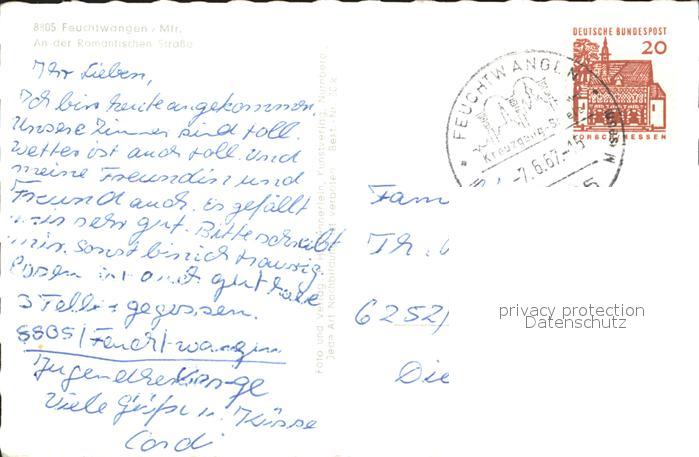 8805 Feuchtwangen, Mfr.
An der Romantischen Straße
Ihr Lieben,
Ich bin heute angekommen.
Unsere Zimmer sind toll.
Wetter ist auch toll. Und
meine Freundin und
Freund auch. Es gefällt
mir sehr gut. Bitte schreibt
mir. Sonst bin ich traurig.
Essen ist auch gut habe
3 Teller gegessen.
8805 / Feuchtwangen
Jugendherberge
Viele Grüße u. Küsse
Cordi
Foto und Verlag
Jede Art Nachbildung verboten Best.-Nr.
DEUTSCHE BUNDESPOST
20
LORSCH HESSEN
FEUCHTWANGEN
Kreuzgang
-7.6.67.-15
Fam
Th.
6252
Die
privacy protection
Datenschutz